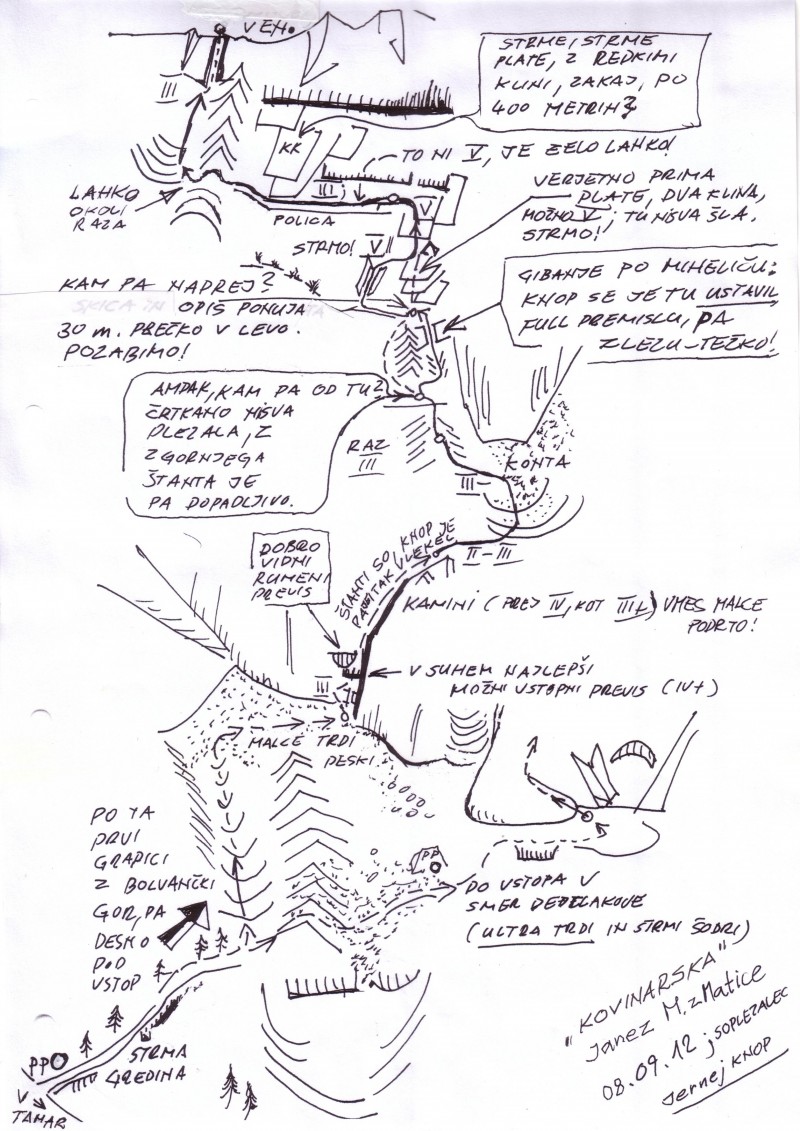 V EH.
STRME, STRME
PLATE, Z REDKIMI
KLINI, ZAKAJ, PO
400 METRIH?
III
KK
TO NI V, JE ZELO LAHKO!
LAHKO
OKOLI
RAZA
III
POLICA
V
VERJETNO PRIMA
PLATE, DVA KLINA,
MOŽNO V, TU NISVA ŠLA.
STRMO!
STRMO! V
KAM PA NAPREJ?
SKICA IN OPIS PONUJATA
30 m. PREČKO V LEVO.
POZABIMO!
GIBANJE PO MIHELIČU:
KNOP SE JE TU USTAVIL,
FULL PREMISLU, PA
ZLEZU-TEŽKO!
AMPAK, KAM PA OD TU?
ČRTKANO NISVA
PLEZALA, Z
ZGORNJEGA
ŠTANTA JE
PA DOPADLJIVO.
RAZ
III
KONTA
III
II-III
ŠTANTI SO, KNOP JE
VLEKEL
DOBRO
VIDNI
RUMENI
PREVIS
KAMINI (PREJ IV, KOT III+) VMES MALCE
PODRTO!
III
V SUHEM NAJLEPŠI
MOŽNI VSTOPNI PREVIS (IV+)
MALCE TRDI
PESKI
PO TA
PRVI
GRAPICI
Z BOLVANČKI
GOR, PA
DESNO
POD
VSTOP
PP
DO VSTOPA V
SMER DEDTLAKOVE
(ULTRA TRDI IN STRMI ŠODRI)
PP
STRMA
GREDINA
V
TAMAR
"KOVINARSKA"
Janez M. z Matice
08.09.12 j SOPLEZALEC
Jernej KNOP